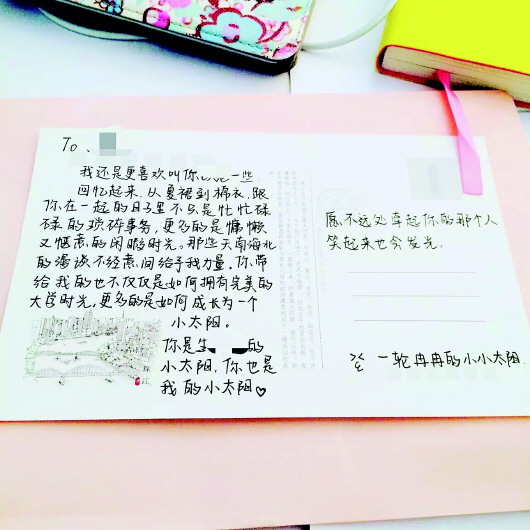 To、
我还是更喜欢叫你 一些
回忆起来，从夏裙到棉衣，跟
你在一起的日子里不只是忙忙碌
碌的琐碎事务，更多的是慵懒
又惬意的闲暇时光。那些天南海北
的漫谈不经意间给予我力量。你带
给我的也不仅仅是如何拥有完美的
大学时光，更多的是如何成长为一个
小太阳。
你是生 的
小太阳，你也是
我的小太阳♡
愿不远处牵起你的那个人
笑起来也会发光。
一轮冉冉的小小太阳